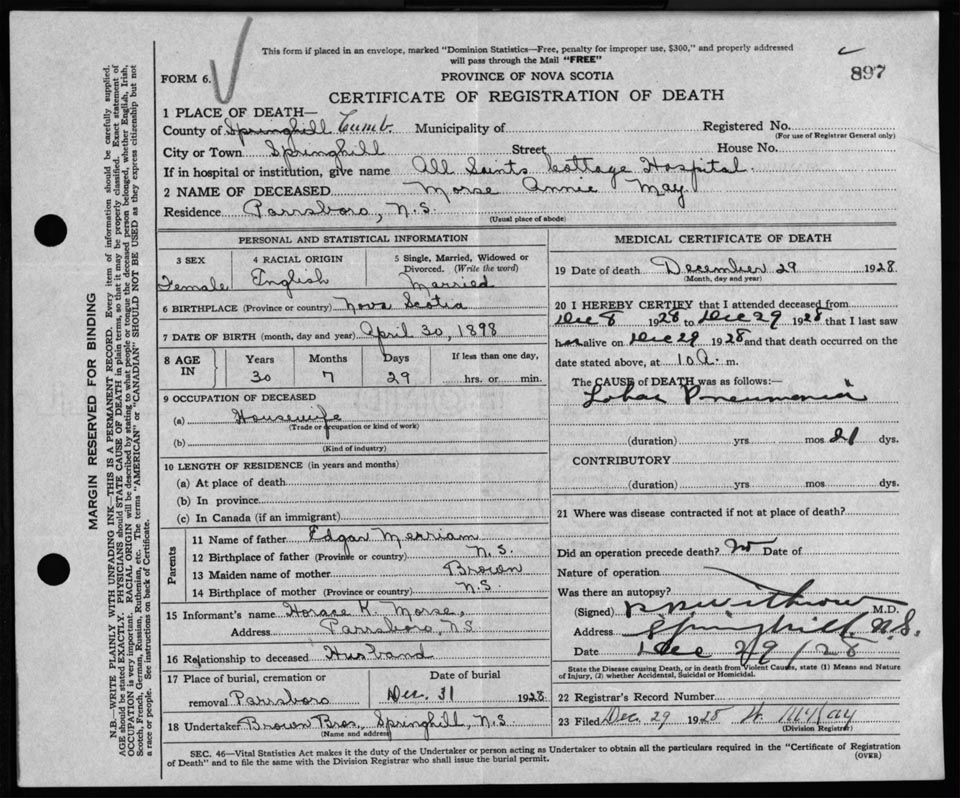 This form if placed in an envelope, marked "Dominion Statistics—Free, penalty for improper use, $300," and properly addressed
will pass through the Mail "FREE"
897
FORM 6.
PROVINCE OF NOVA SCOTIA
CERTIFICATE OF REGISTRATION OF DEATH
1 PLACE OF DEATH—
County of Springhill Cumb. Municipality of Registered No.
(For use of Registrar General only)
City or Town Springhill Street House No.
If in hospital or institution, give name All Saints Cottage Hospital.
2 NAME OF DECEASED Morse Annie May
Residence Parrsboro, N.S.
(Usual place of abode)
PERSONAL AND STATISTICAL INFORMATION
3 SEX
Female
4 RACIAL ORIGIN
English
5 Single, Married, Widowed or
Divorced. (Write the word)
Married
6 BIRTHPLACE (Province or country) Nova Scotia
7 DATE OF BIRTH (month, day and year) April 30, 1898
8 AGE
IN
Years Months Days
30 7 29
If less than one day,
hrs. or min.
9 OCCUPATION OF DECEASED
(a) Housewife
(Trade or occupation or kind of work)
(b)
(Kind of industry)
10 LENGTH OF RESIDENCE (in years and months)
(a) At place of death
(b) In province
(c) In Canada (if an immigrant)
Parents
11 Name of father Edgar Merriam
12 Birthplace of father (Province or country) N.S.
13 Maiden name of mother Brown
14 Birthplace of mother (Province or country) N.S.
15 Informant's name Horace K. Morse,
Address Parrsboro, N.S
16 Relationship to deceased Husband
17 Place of burial, cremation or
removal Parrsboro
Date of burial
Dec. 31 1928
18 Undertaker Brown Bros. Springhill, N.S
(Name and address)
MEDICAL CERTIFICATE OF DEATH
19 Date of death December 29 1928.
(Month, day and year)
20 I HEREBY CERTIFY that I attended deceased from
Dec 8 1928 to Dec 29 1928 that I last saw
her alive on Dec 29 1928 and that death occurred on the
date stated above, at 10 a. m.
The CAUSE of DEATH was as follows:—
Lobar Pneumonia
(duration) yrs mos 21 dys.
CONTRIBUTORY
(duration) yrs. mos. dys.
21 Where was disease contracted if not at place of death?
Did an operation precede death? No Date of
Nature of operation
Was there an autopsy?
(Signed) M.D.
Address Springhill, N.S.
Date Dec 29/28
State the Disease causing Death, or in death from Violent Causes, state (1) Means and Nature
of Injury, (2) whether Accidental, Suicidal or Homicidal.
22 Registrar's Record Number
23 Filed Dec. 29 1928 W. McKay
(Division Registrar)
SEC. 46—Vital Statistics Act makes it the duty of the Undertaker or person acting as Undertaker to obtain all the particulars required in the "Certificate of Registration
of Death" and to file the same with the Division Registrar who shall issue the burial permit.
(OVER)
MARGIN RESERVED FOR BINDING
N.B.—WRITE PLAINLY WITH UNFADING INK—THIS IS A PERMANENT RECORD. Every item of information should be carefully supplied.
AGE should be stated EXACTLY. PHYSICIANS should STATE CAUSE OF DEATH in plain terms, so that it may be properly classified. Exact statement of
OCCUPATION is very important. RACIAL ORIGIN will be described by stating to what people or tongue the deceased person belonged, whether English, Irish,
Scotch, French, German, Russian, Ruthenian, etc. The terms "AMERICAN" or "CANADIAN" SHOULD NOT BE USED as they express citizenship but not
a race or people. See instructions on back of Certificate.